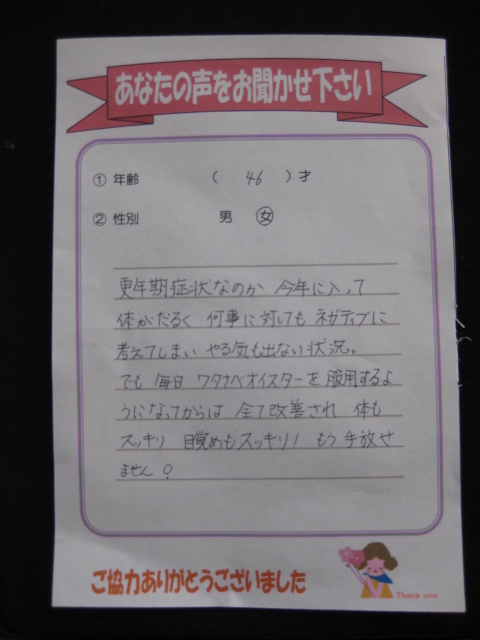 あなたの声をお聞かせ下さい
① 年齢 ( 46 ) 才
② 性別 男 女
更年期症状なのか 今年に入って
体がだるく 何事に対しても ネガティブに
考えてしまい やる気も出ない状況。
でも 毎日 ワタナベオイスターを 服用するよ
うになってからは 全て改善され 体も
スッキリ 目覚めもスッキリ! もう手放せ
ません。
ご協力ありがとうございました
Thank you!